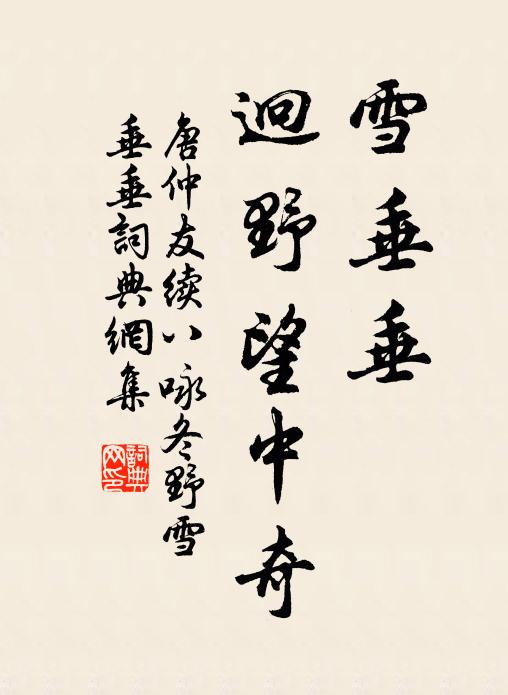 雪垂垂
迥野望中奇
唐仲友续八咏冬野雪
垂垂詞典網集
詞典
网印